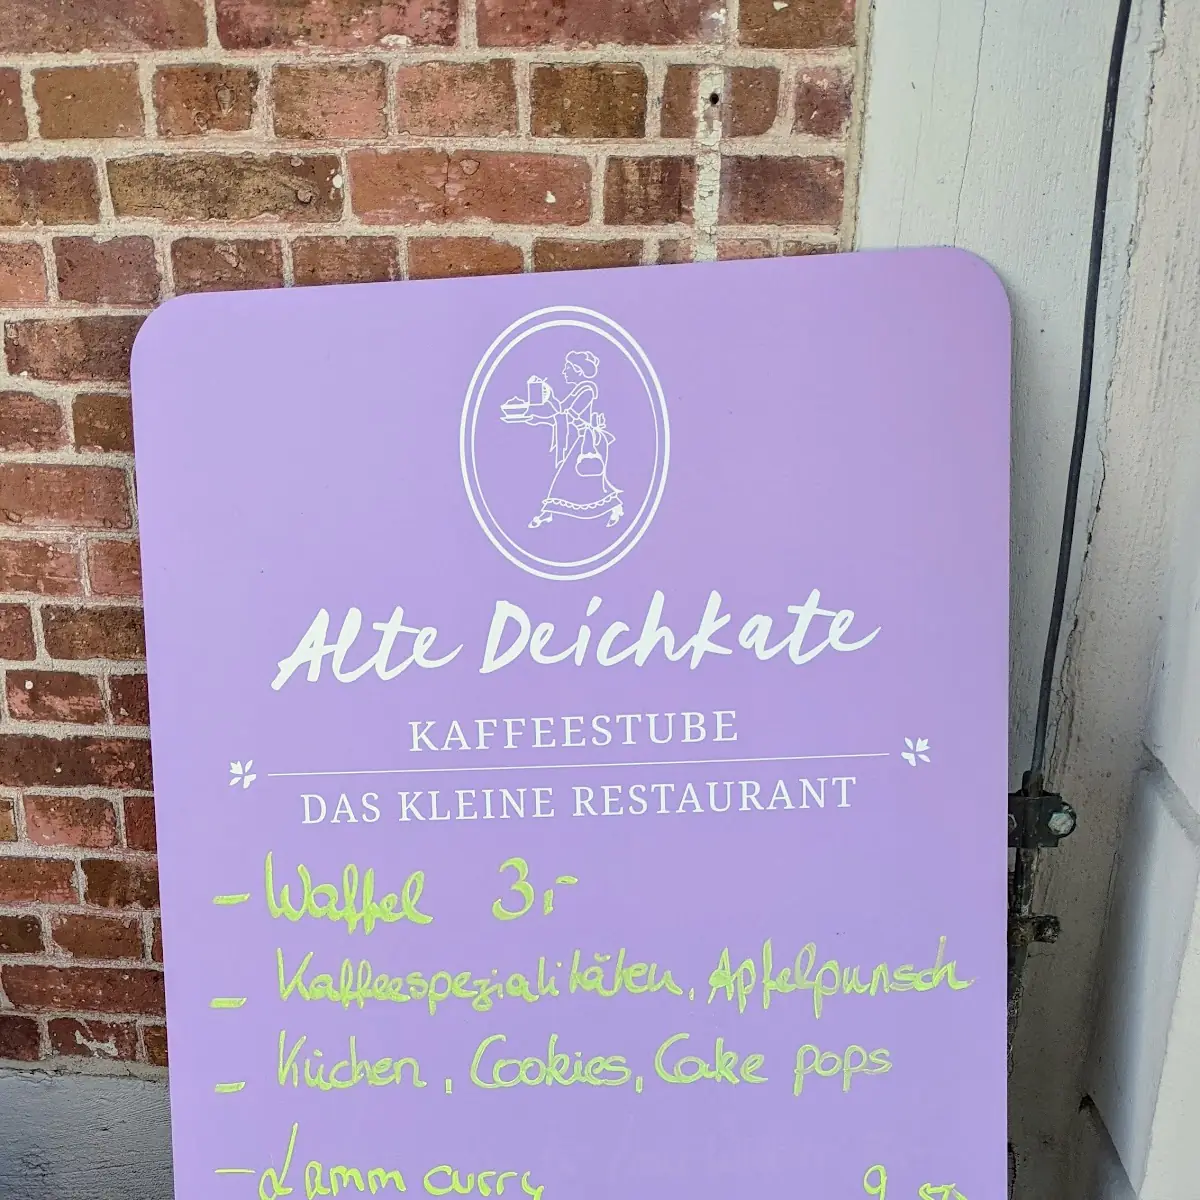 Alte Deichkate
KAFFEESTUBE
DAS KLEINE RESTAURANT
- Waffel 3,-
- Kaffeespezialitäten, Apfelpunsch
- Küchen, Cookies, Cake pops
- Lamm curry 9,50